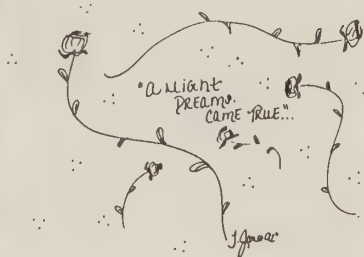 "A Night
DREAMS.
CAME TRUE"...